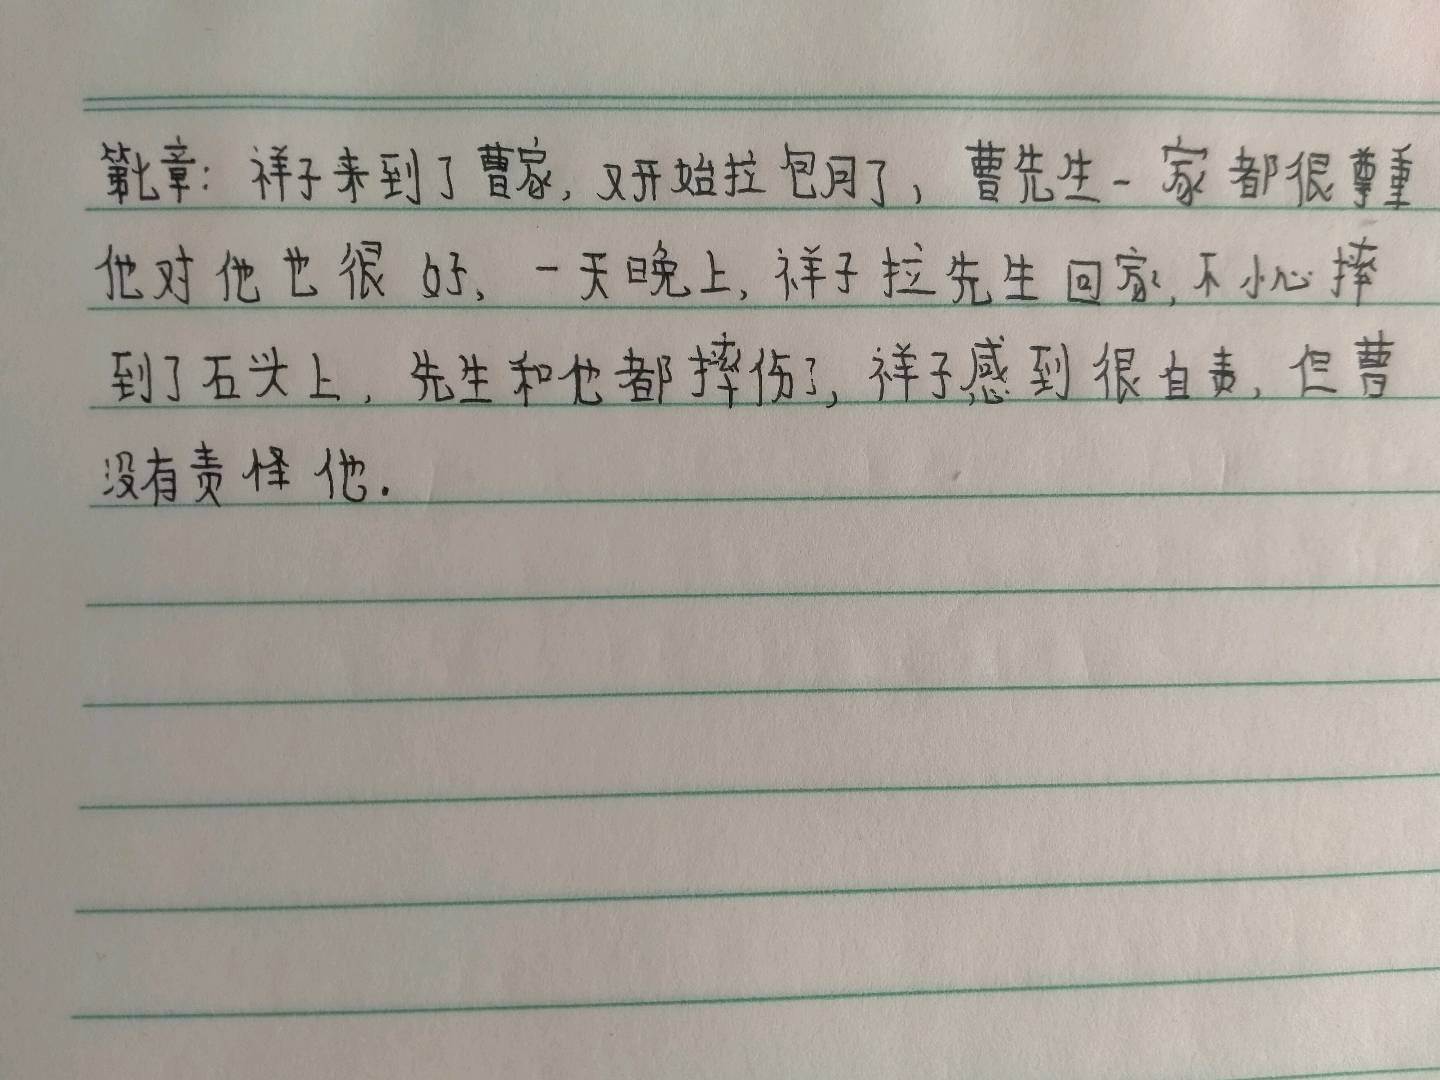 第七章：祥子来到了曹家，又开始拉包月了，曹先生一家都很尊重
他对他也很好、一天晚上，祥子拉先生回家，不小心摔
到了石头上，先生和他都摔伤了，祥子感到很自责，但曹
没有责怪他.